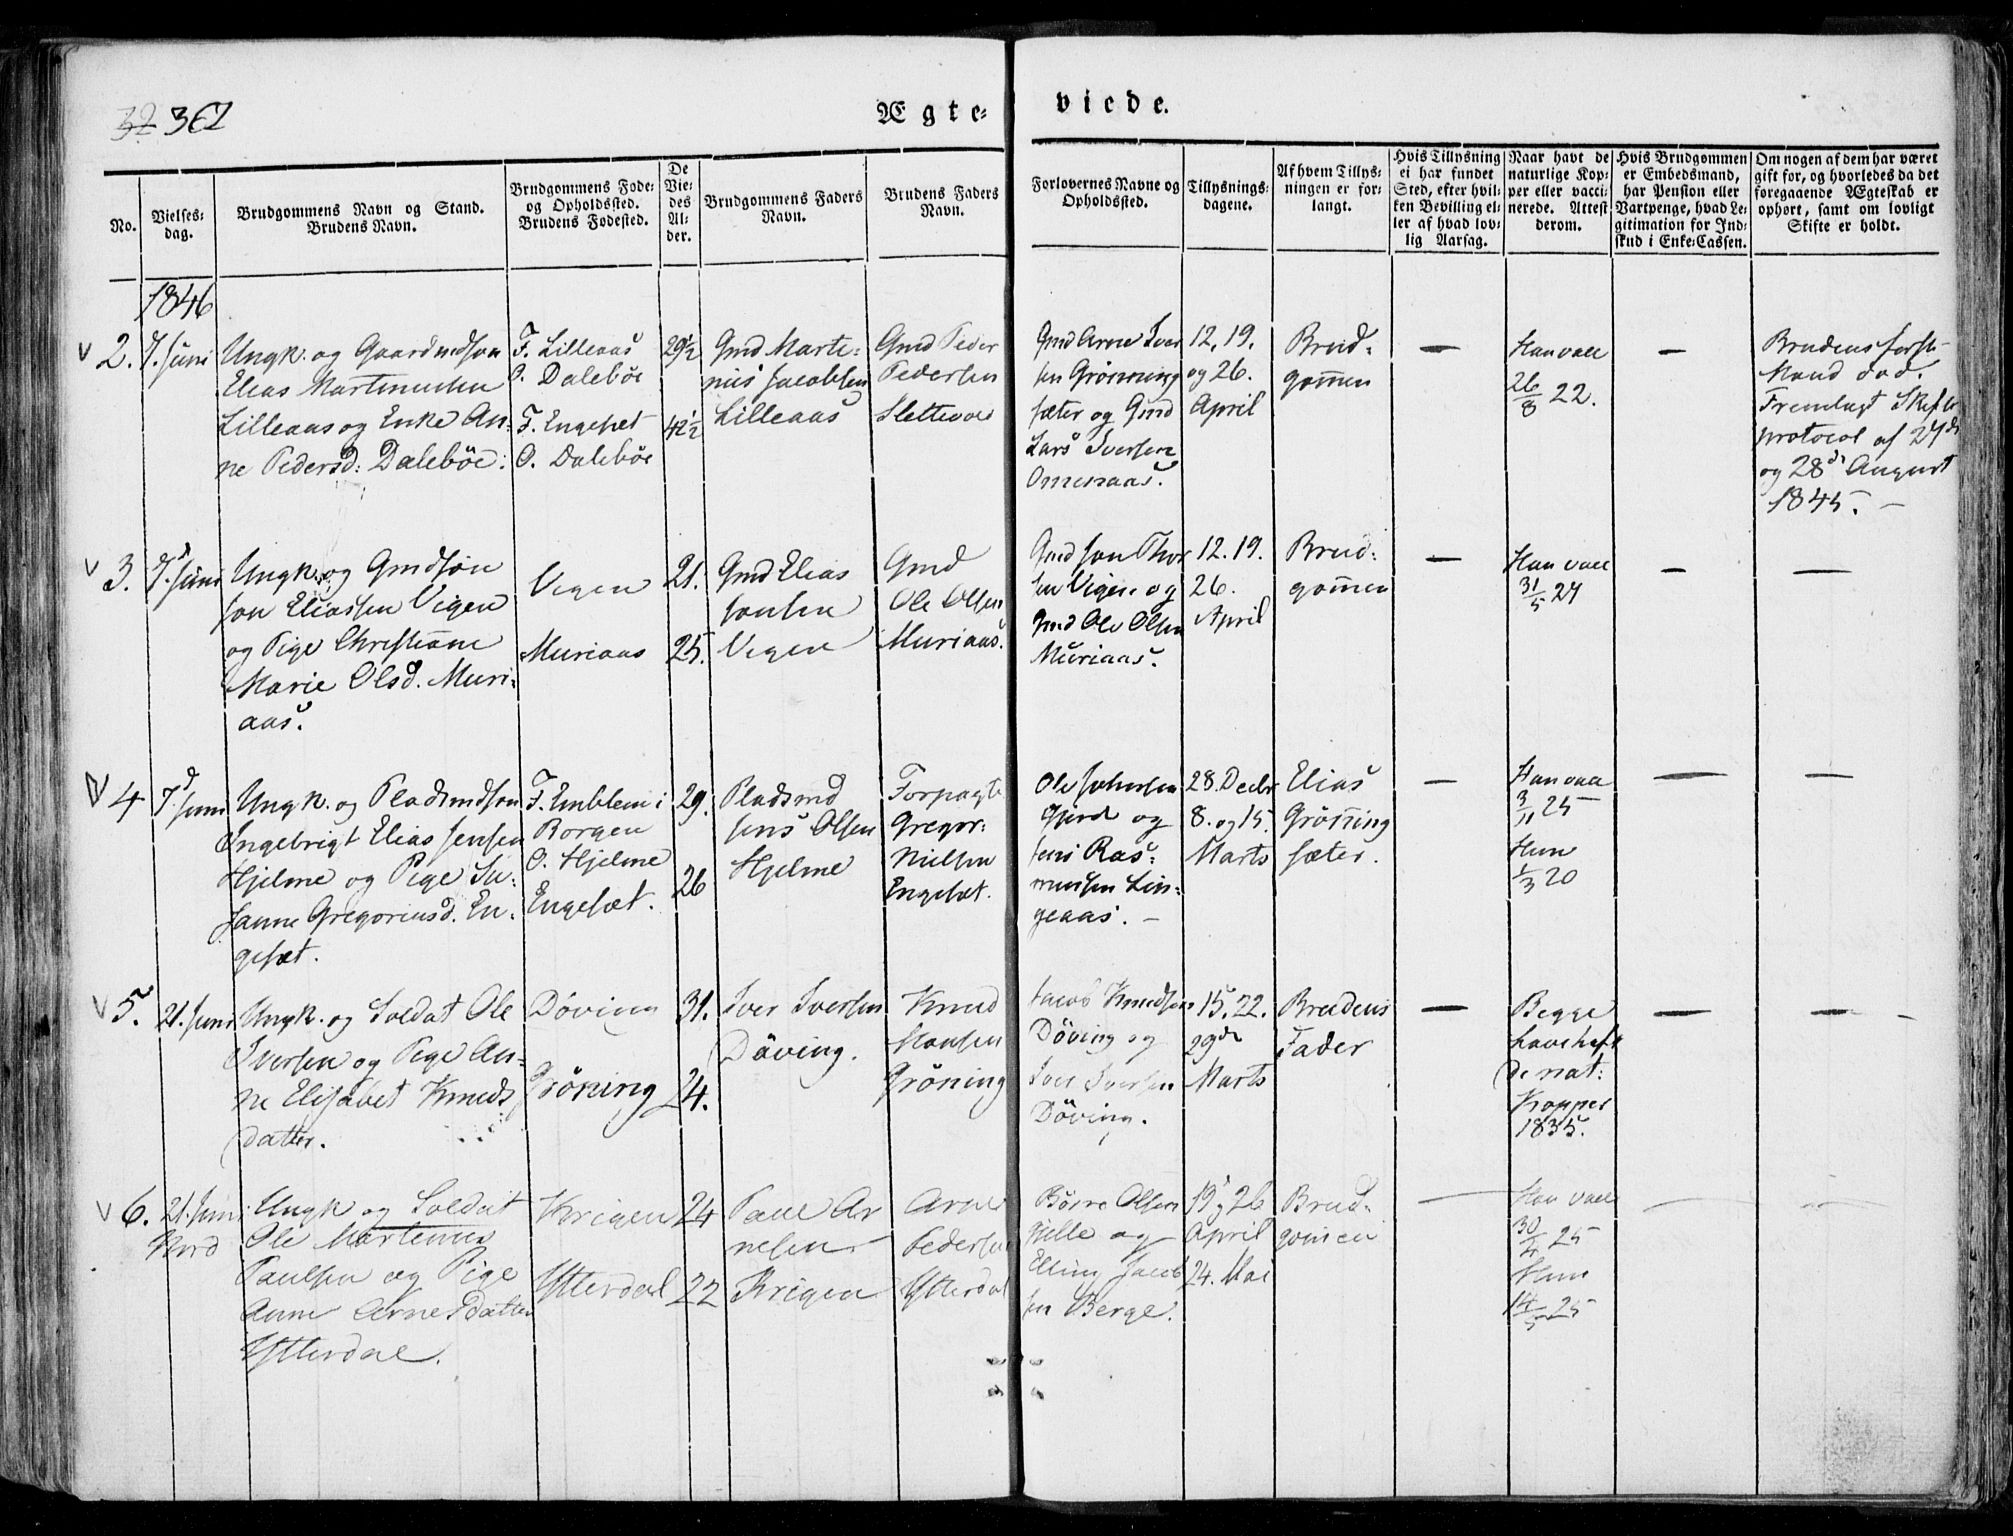 32 362
Ægte-
viede.
No.
Vielses-
dag.
Brudgommens Navn og Stand.
Brudens Navn.
Brudgommens Føde-
og Opholdssted.
Brudens Fødested.
De
Vie-
des
Al-
der.
Brudgommens Faders
Navn.
Brudens Faders
Navn.
Forlovernes Navne og
Opholdssted.
Tillysnings-
dagene.
Af hvem Tillys-
ningen er for-
langt.
Hvis Tillysning
ei har fundet
Sted, efter hvil-
ken Bevilling el-
ler af hvad lov-
lig Aarsag.
Naar havt de
naturlige Kop-
per eller vacci-
nerede. Attest
derom.
Hvis Brudgommen
er Embedsmand,
har Pension eller
Vartpenge, hvad Le-
gitimation for Ind-
skud i Enke-Cassen.
Om nogen af dem har været
gift før, og hvorledes da det
foregaaende Ægteskab er
ophørt, samt om lovligt
Skifte er holdt.
1846
2. 7. Juni
Ungk. og Gaardmdsøn
Elias Martinussen
Lilleaas og Enke An-
ne Pedersd: Dalebøe.
F. Lilleaas
O. Dalebøe
F. Engeset
O. Dalebøe
29½
42½
Gmd Marti-
nus Jacobsen
Lilleaas
Gmd Peder
Pedersen
Slettevold
Gmd Arne Iver
sen Grønning
sæter og Gmd
Lars Iversen
Omenaas.
12. 19.
og 26.
April
Brud-
gom̅en
—
Han vacc
26/8 22.
—
Brudens første
Mand død.
Fremlagt Skifte
protocol af 27de
og 28de August
1845. —
3. 7d Juni
Ungk. og Gmdsøn
Jon Eliassen Vigen
og Pige Christiane
Marie Olsd. Muri-
aas.
Vegen
Muriaas
21.
25.
Gmd Elias
Jonsen
Vegen
Gmd
Ole Olsen
Muriaas.
Gmd Jon Thor
sen Vigen og
Gmd Ole Olsen
Muriaas.
12. 19.
26.
April
Brud-
gom̅en
—
Han vacc
31/5 27
—
—
4 7d Juni
Ungk. og Pladsmdsøn
Ingebrigt Elias Jensen
Hjelme og Pige Su-
sanne Gregoriusd. En-
geset.
F. Emblem i
Borgen
O. Hjelme
Engeset.
29.
26
Pladsmd
Jens Olsen
Hjelme
Forpagt
Gregor:
Nielsen
Engeset.
Ole Johnsen
Gjerd og
Jens Ras-
mussen Lin-
geaas. —
28. Decbr
8. og 15.
Marts
Elias
Grøn̅ing
sæter.
—
Han vacc
3/11 25
Hun
1/3 20
—
—
5. 21. Juni
Ungk. og Soldat Ole
Iversen og Pige An-
ne Elisabet Knuds
datter.
Døving
Grøning
31.
24.
Iver Iversen
Døving.
Knud
Hansen
Grøning
Jacob Knudsen
Døving og
Iver Iversen
Døving.
15. 22.
29de
Marts
Brudens
Fader
—
Begge
have haft
de nat:
Kopper
1835.
—
—
6. 21. Juni
Nord
Ungk og Soldat
Ole Martinus
Paulsen og Pige
Anne Arnesdatter
Ytterdal.
Krigen
Ytterdal
24
22
Paul Ar
nesen
Krigen
Arne
Pedersen
Ytterdal
Børre Olsen
Hjelle og
Elling Jacob
sen Berge.
19, 26
April
24. Mai
Brud-
gom̅en
—
Han vacc
30/4 25
Hun
14/5 25
—
—